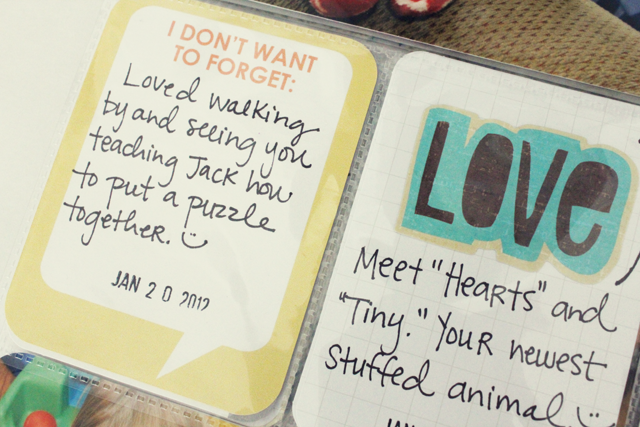 I DON'T WANT
TO FORGET:
Loved walking
by and seeing you
teaching Jack how
to put a puzzle
together.
JAN 20 2012
LOVE
Meet "Hearts" and
"Tiny." Your newest
stuffed animal.